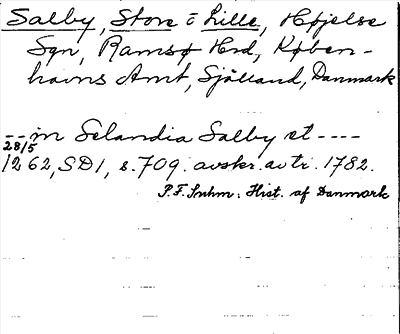 Salby, Store & Lille, Højelse
Sgn, Ramsø Hrd, Køben-
havns Amt, Sjælland, Danmark
-- in Selandia Salby et ----
28/5
1262, SD1, s. 709. avskr. av tr. 1782.
P.F. Suhm: Hist. af Danmark